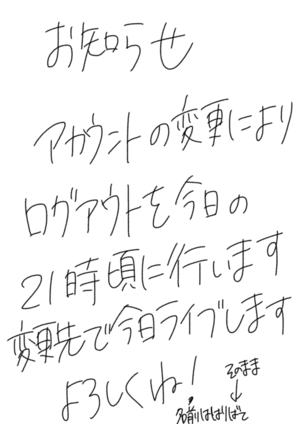 お知らせ
アカウントの変更により
ログアウトを今日の
21時頃に行います
変更先で今日ライブします
よろしくね!
そのまま
↓
名前ははりばて